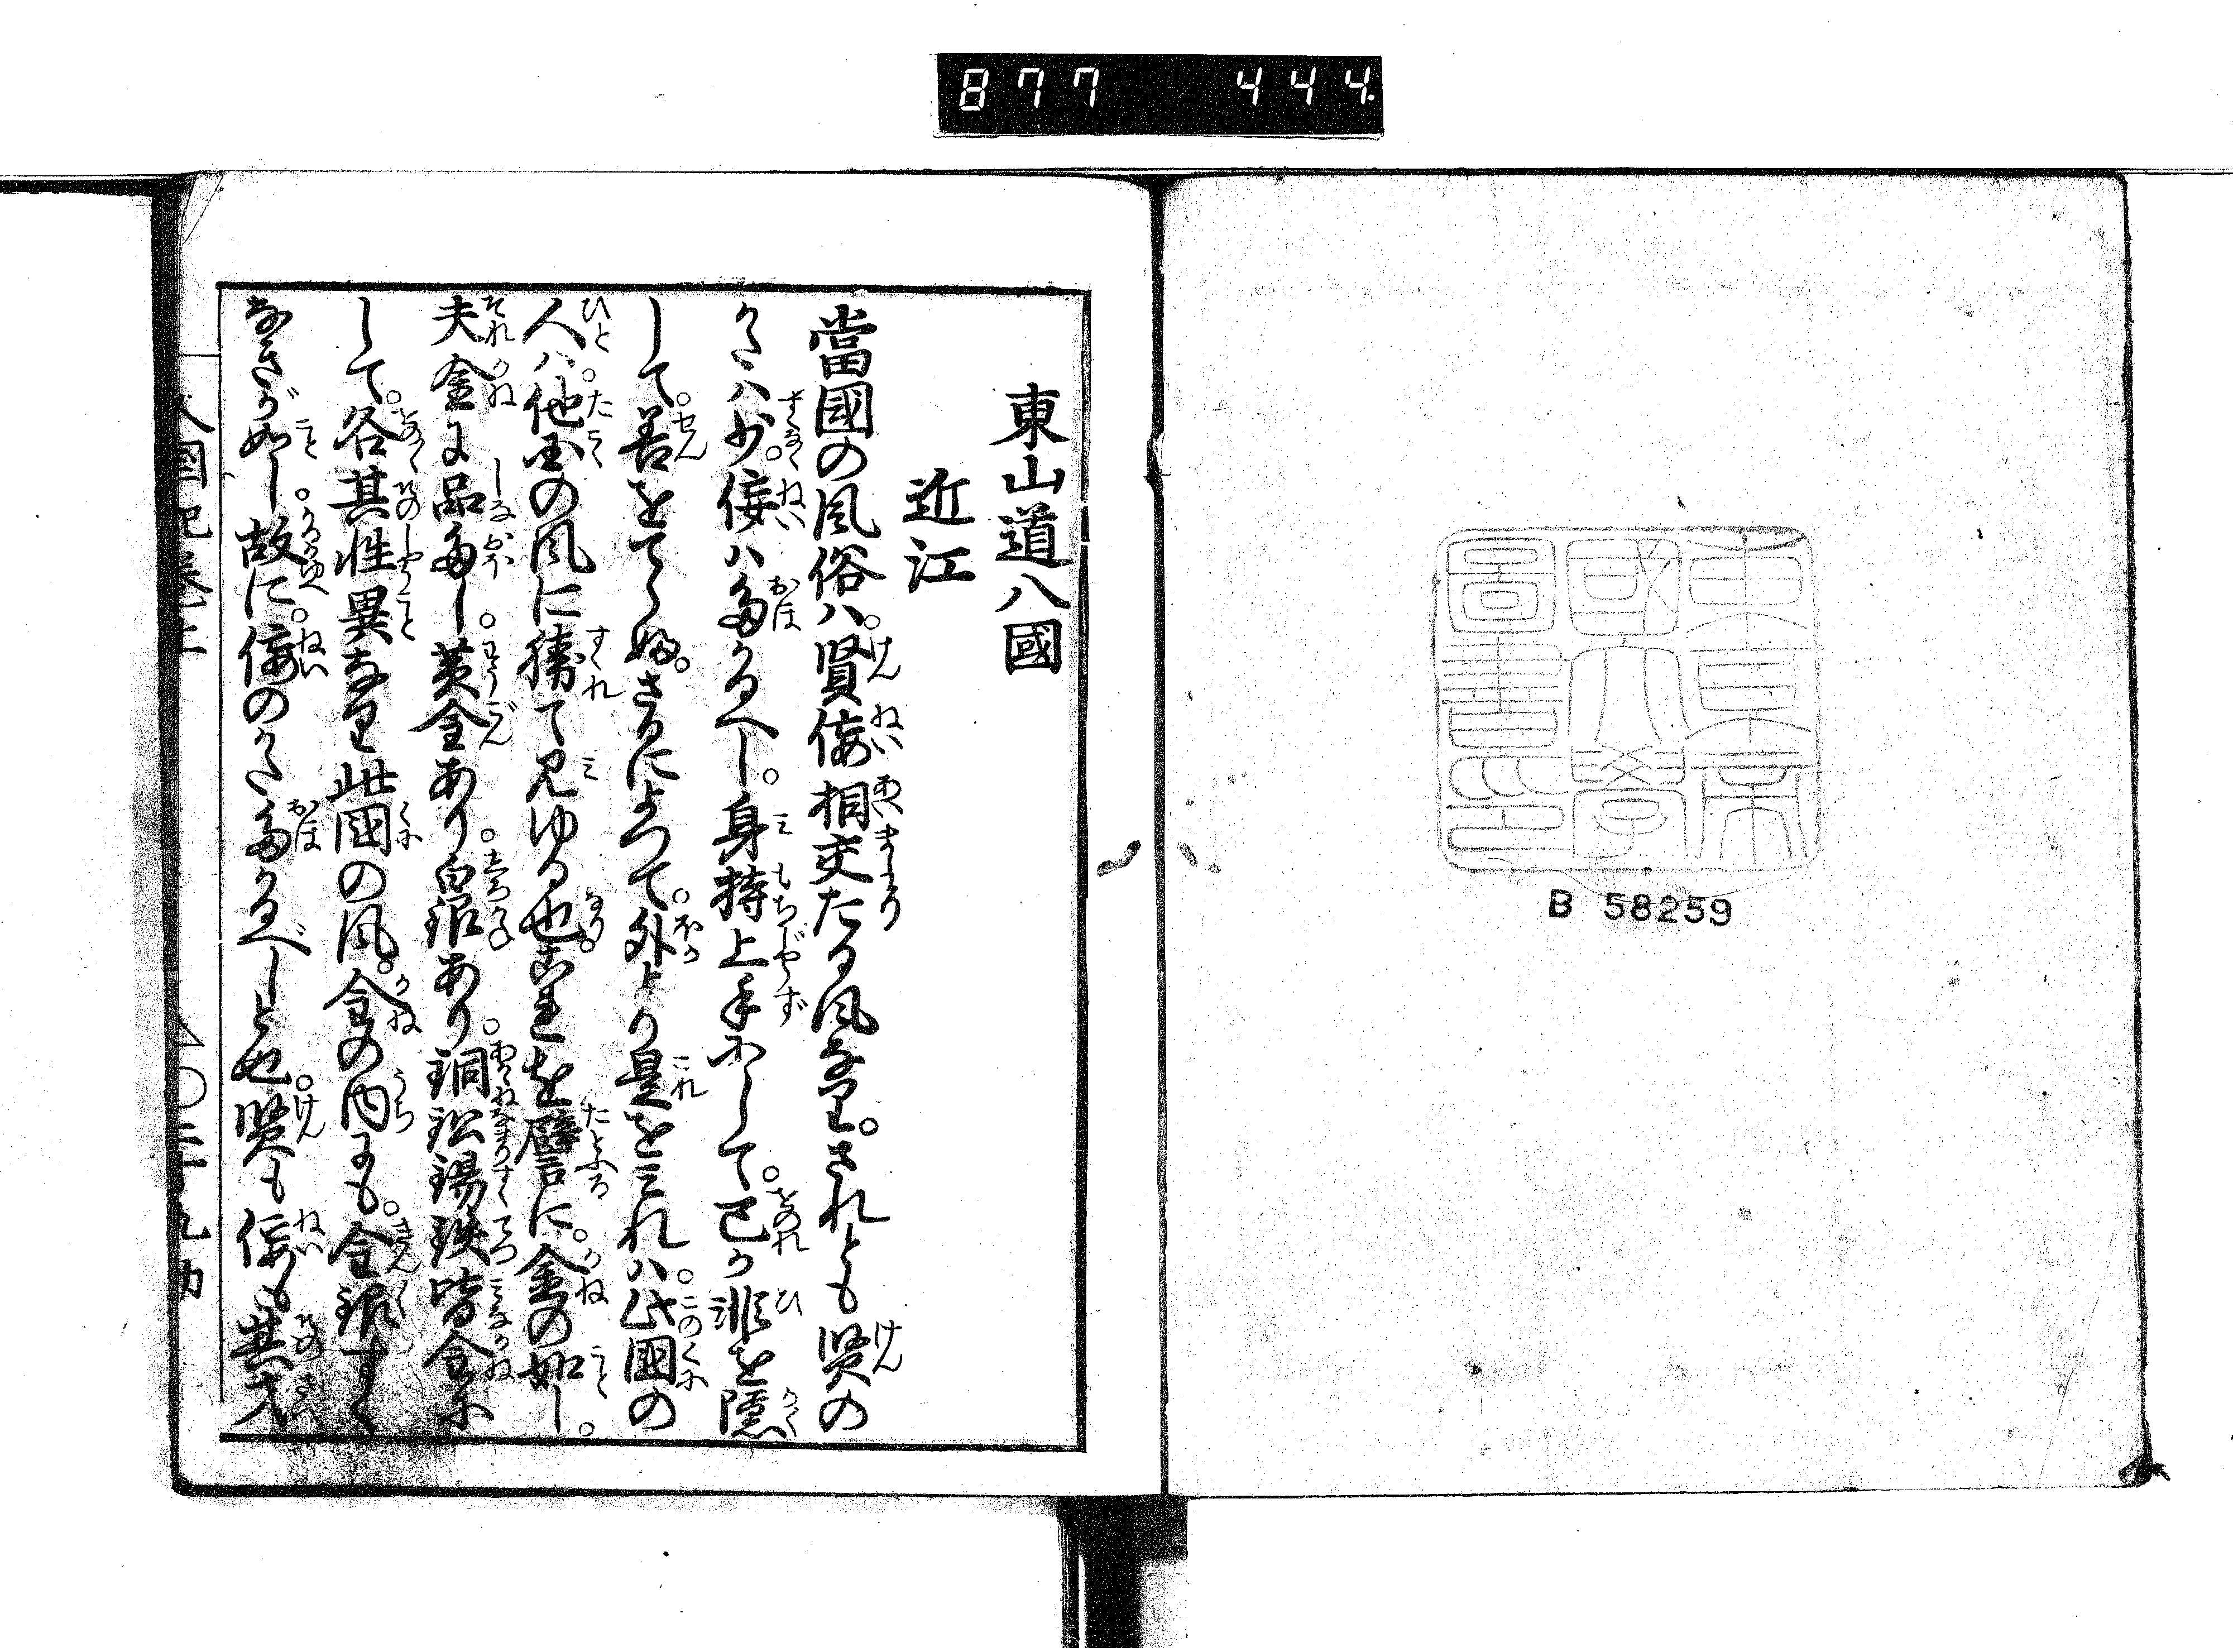 877 444
東京帝
國大學
圖書印
B 58259
東山道八國
近江
當國の風俗ハ。賢佞相交たる風なり。されとも賢の
かたハ少。佞ハ多かるへし。身持上手にして。己か非を隠
して。善をてらふ。さるによつて。外より是をミれハ。此國の
人ハ。他国の風に勝て見ゆる也。是を譬に。金の如し。
夫金に品多し。黄金あり。白銀あり。銅鉛錫鉄皆金に
して。各其性異なり此國の風。金の内にも。金銀すく
なきが如し。故に。佞のかた多かるべしと也。賢も佞も其才